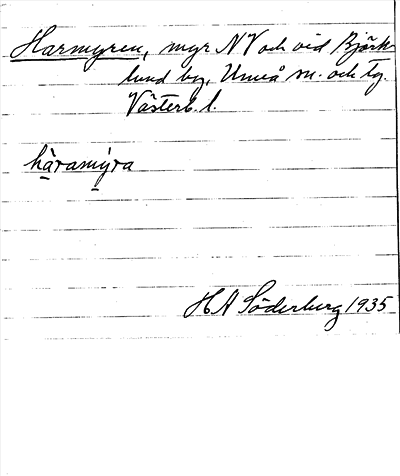 Harmyren, myr NV och vid Björk-
lund by, Umeå sn. och tg.
Västerb. l.
hàramy̕ra
H A Söderberg 1935